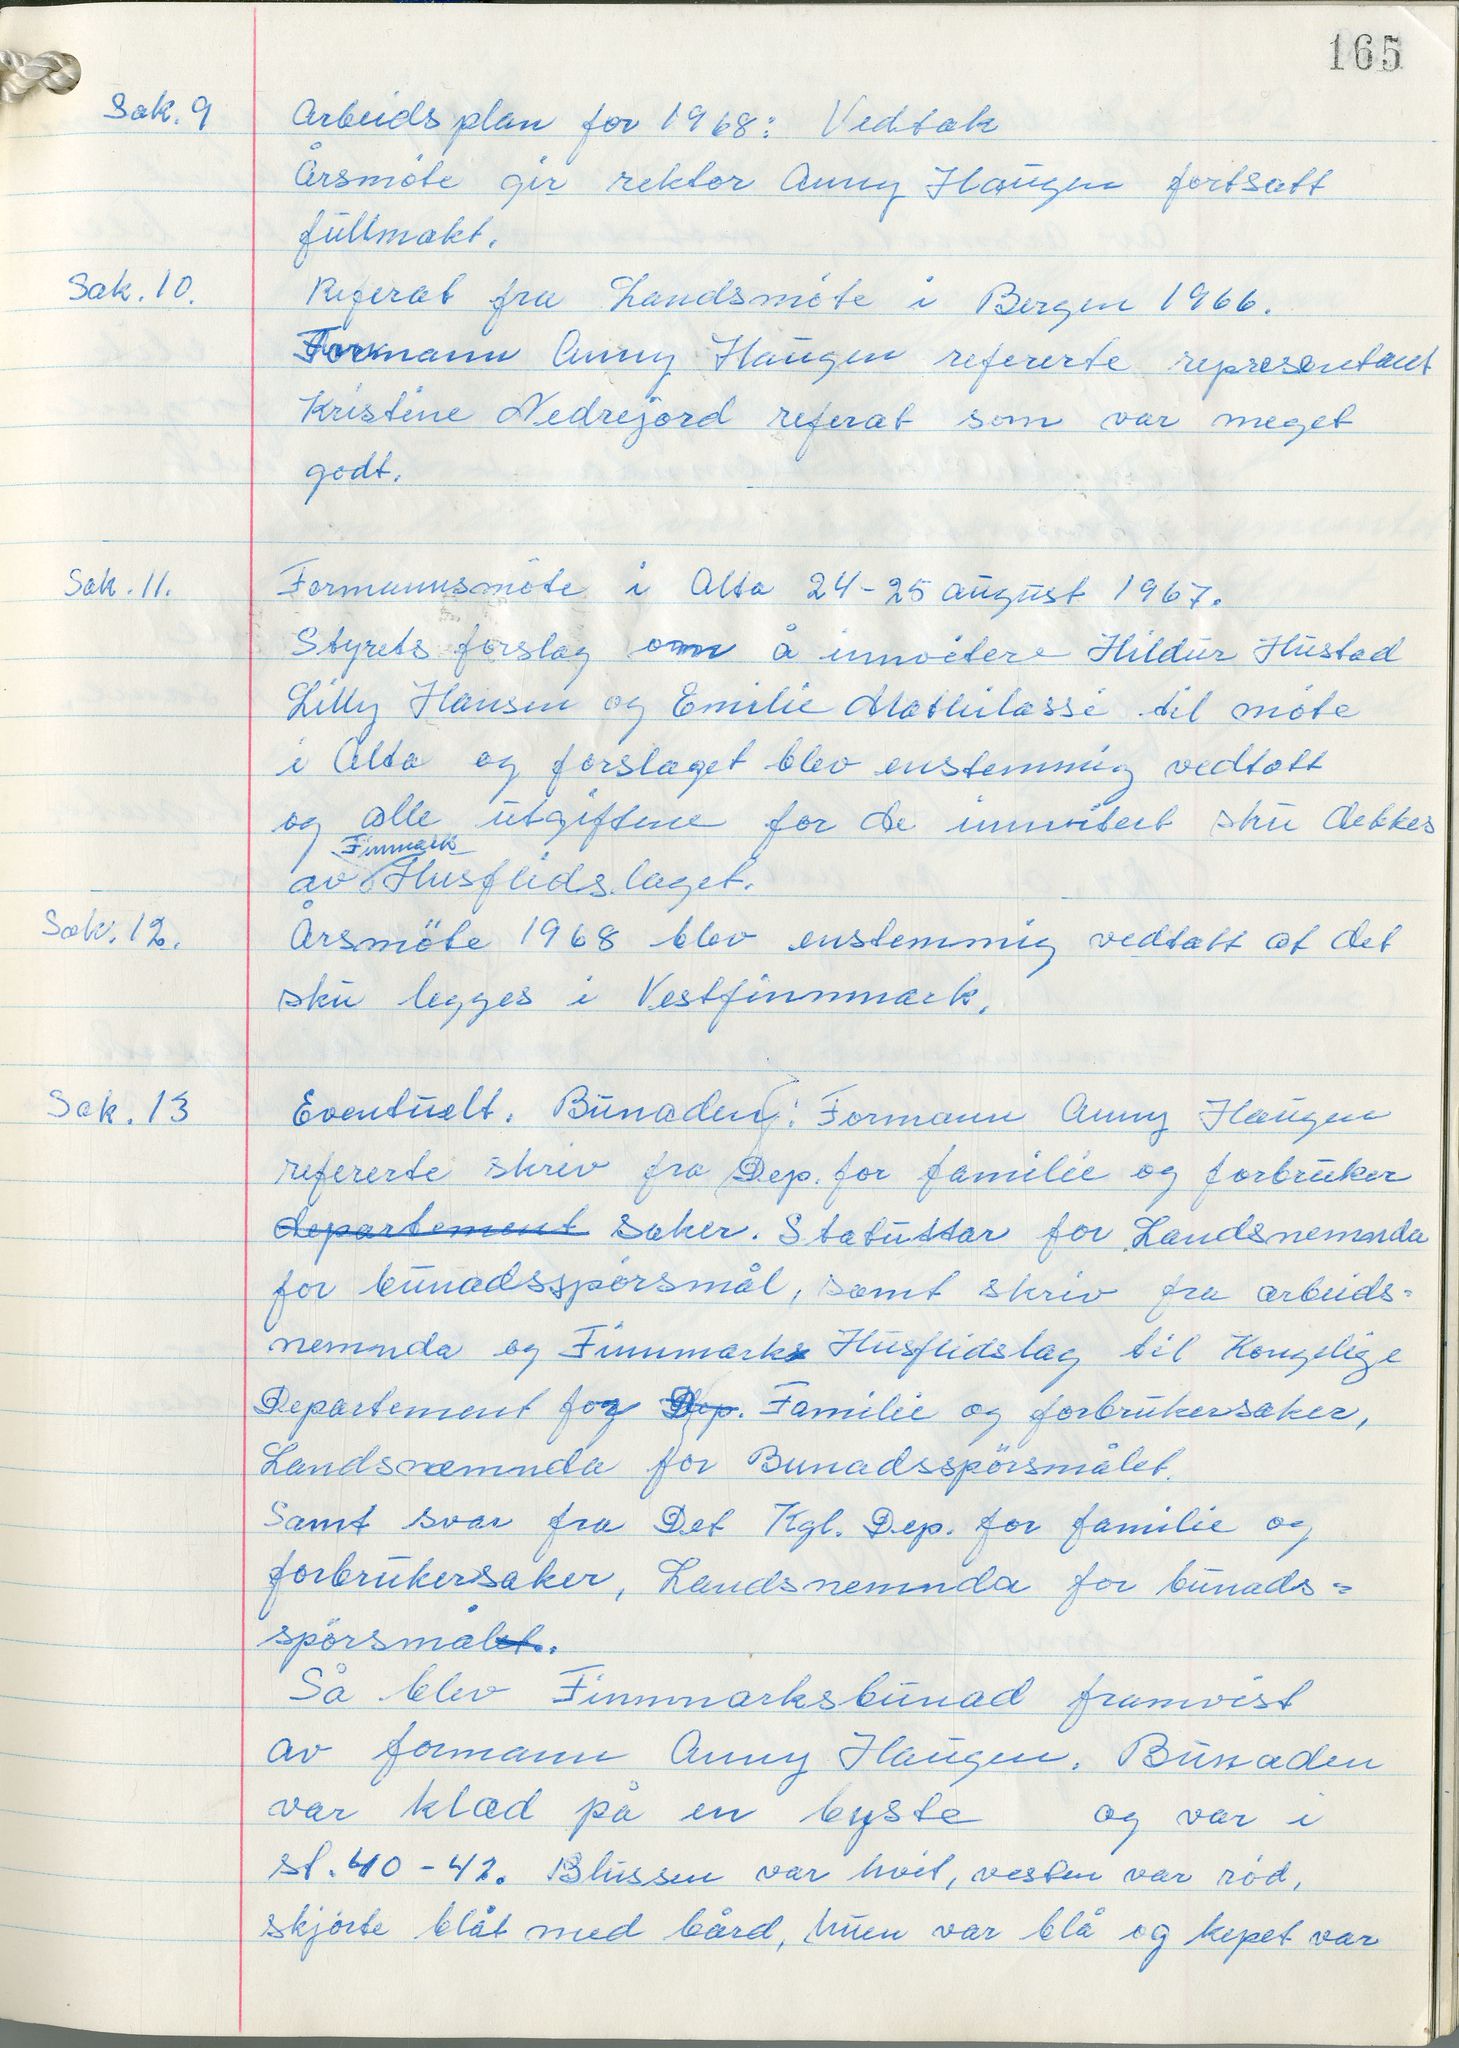 165
Sak. 9 Arbeidsplan for 1968: Vedtak
Årsmöte gir rektor Anny Haugen fortsatt
fullmakt.
Sak. 10. Referat fra Landsmöte i Bergen 1966.
Formann Anny Haugen refererte representant
Kristine Nedrejord referat som var meget
godt.
Sak. 11. Formannsmöte i Alta 24-25 august 1967.
Styrets forslag om å innvitere Hildur Hustad
Lilly Hansen og Emilie Mathilassi til möte
i Alta og forslaget blev enstemmig vedtatt
og alle utgiftene for de innvitert sku dekkes
Finmark
av Husflidslaget.
Sak. 12. Årsmöte 1968 blev enstemmig vedtatt at det
sku legges i Vestfinnmark.
Sak. 13 Eventuelt. Bunaden: Formann Anny Haugen
refererte skriv fra Dep. for familie og forbruker
departement saker. Statuttar for Landsnemnda
for bunadsspörsmål, samt skriv fra arbeids=
nemnda og Finnmarks Husflidslag til Kongelige
Departement for Dep. Familie og forbrukersaker,
Landsnemnda for Bunadsspörsmålet.
Samt svar fra Det Kgl. Dep. for familie og
forbrukersaker, Landsnemnda for bunads=
spörsmålet.
Så blev Finnmarksbunad framvist
av formann Anny Haugen. Bunaden
var klæd på en byste og var i
st. 40-42. Blussen var hvit, vesten var röd,
skjörte blåt med bård, huen var blå og kepet var